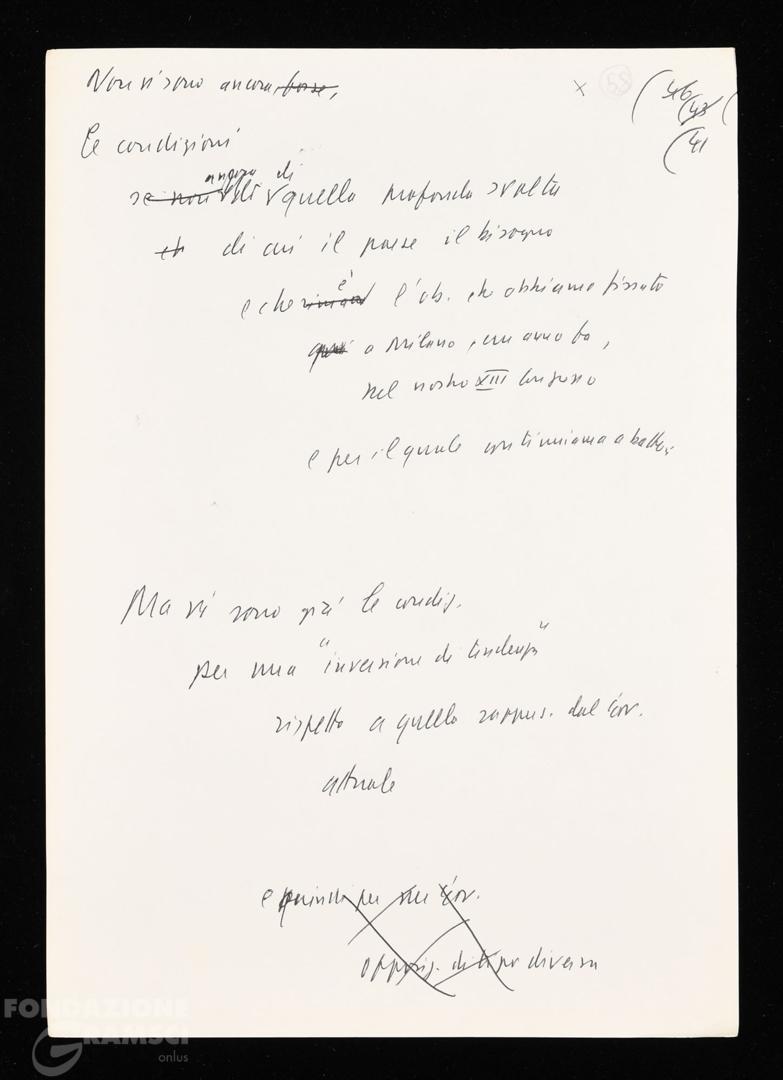 Non vi sono ancora forse,
× 58 (46
(43 (
(41
le condizioni
ancora di
se non di quella profonda svolta
di cui il paese il bisogno
è
e che l'ob. che abbiamo fissato
a Milano, un anno fa,
nel nostro XIII Congresso
e per il quale continuiamo a batterci
Ma vi sono già le condiz.
per una "inversione di tendenza"
rispetto a quella rappres. dal Gov.
attuale
e quindi per un Gov.
opposiz. di tipo diverso
FONDAZIONE
GRAMSCI
onlus